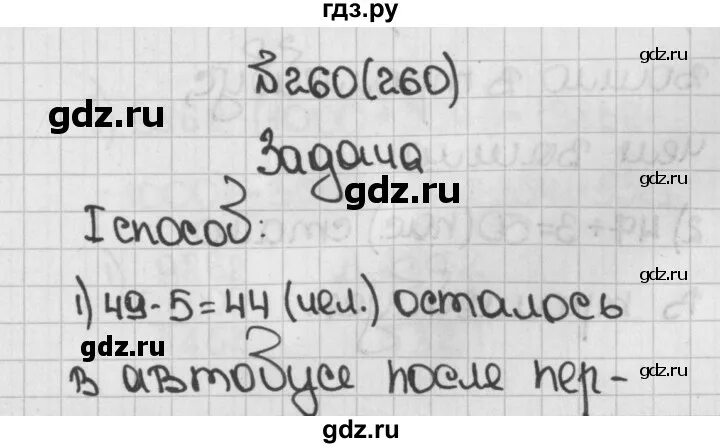 гдз.ру
№260(260)
gdz.ru
gdz.ru
gdz.ru
Задача
gdz.ru
gdz.ru
I способ:
gdz.ru
1) 49-5=44 (чел.) осталось
gdz.ru
в автобусе после пер-
gdz.ru
gdz.ru